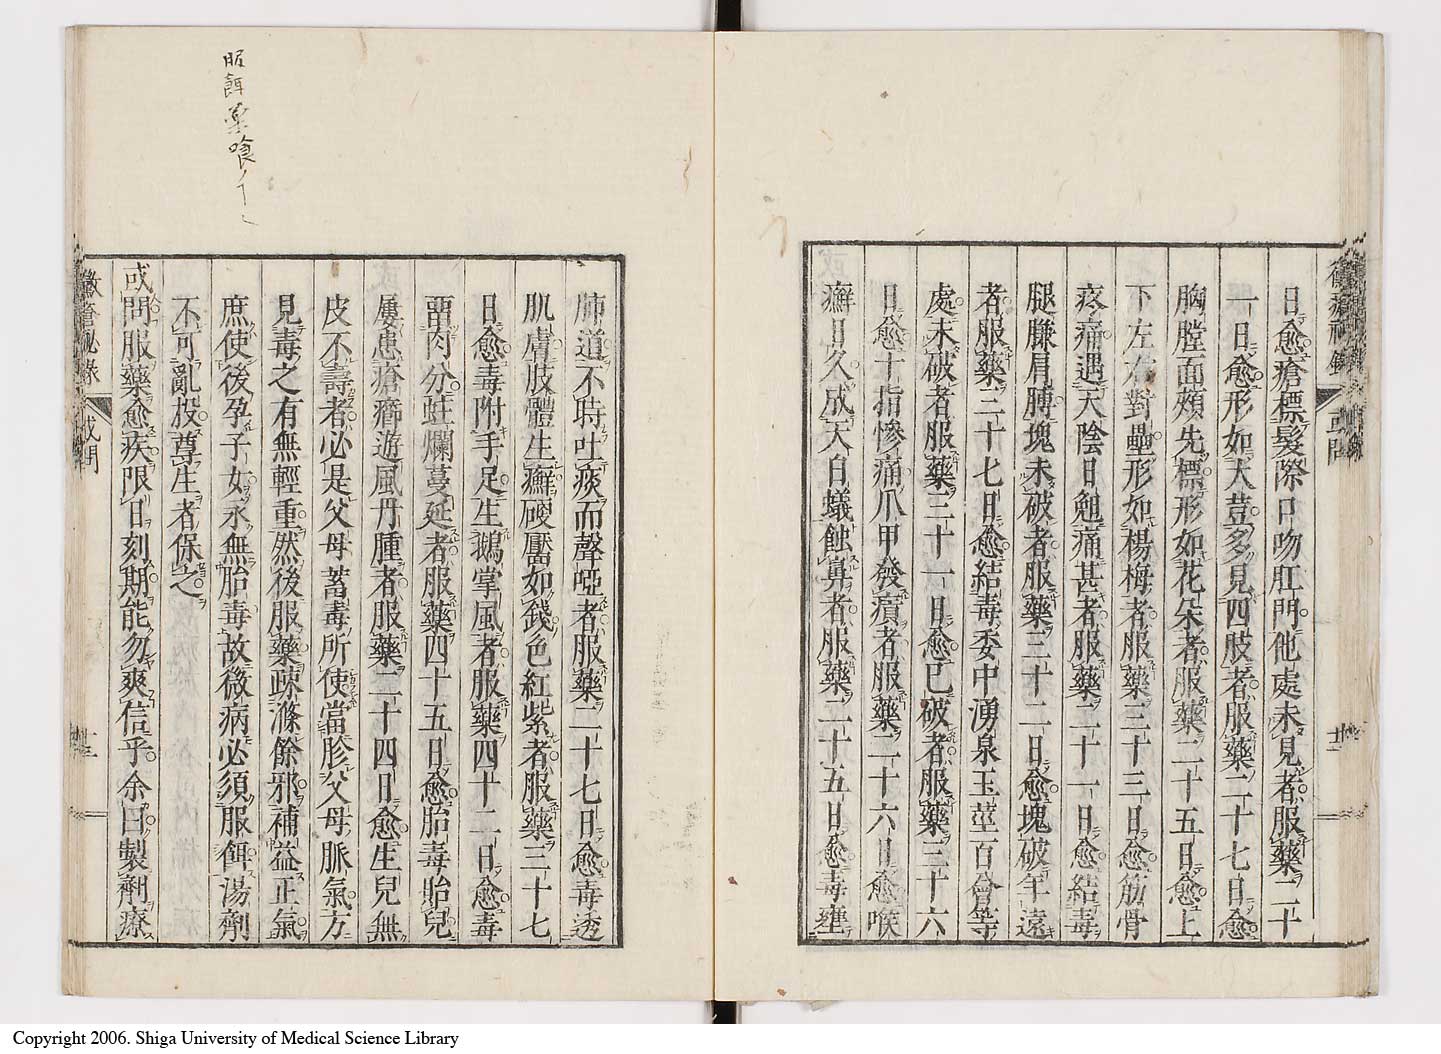 日愈瘡標髮際口吻肛門他處未見者服藥二十
一日愈形如大荳多見四肢者服藥二十七日愈
胸膛面頰先標形如花朵者服藥二十五日愈上
下左右對壘形如楊梅者服藥三十三日愈筋骨
疼痛遇天陰日尩痛甚者服藥二十一日愈結毒
腿臁肩膊塊未破者服藥三十二日愈塊破年遠
者服藥三十七日愈結毒委中湧泉玉莖百會等
處未破者服藥三十一日愈已破者服藥三十六
日愈十指慘痛爪甲發癀者服藥二十六日愈喉
癬日久成天白蟻蝕鼻者服藥二十五日愈毒壅
肺道不時吐痰而聲啞者服藥二十七日愈毒透
肌膚肢體生癬硬靨如錢色紅紫者服藥三十七
日愈毒附手足生鵝掌風者服藥四十二日愈毒
畱肉分蛀爛蔓延者服藥四十五日愈胎毒貽兒
屢患瘡癤遊風丹腫者服藥二十四日愈生兒無
皮不壽者必是父母蓄毒所使當胗父母脈氣方
見毒之有無輕重然後服藥疎滌餘邪補益正氣
庶使後孕子女永無胎毒故黴病必須服餌湯劑
不可亂投尊生者保之
或問服藥愈疾限日刻期能勿爽信乎余曰製劑療
黴瘡秘錄 或問 十二
黴瘡秘錄 或問 十三
服餌藥喰
Copyright 2006. Shiga University of Medical Science Library